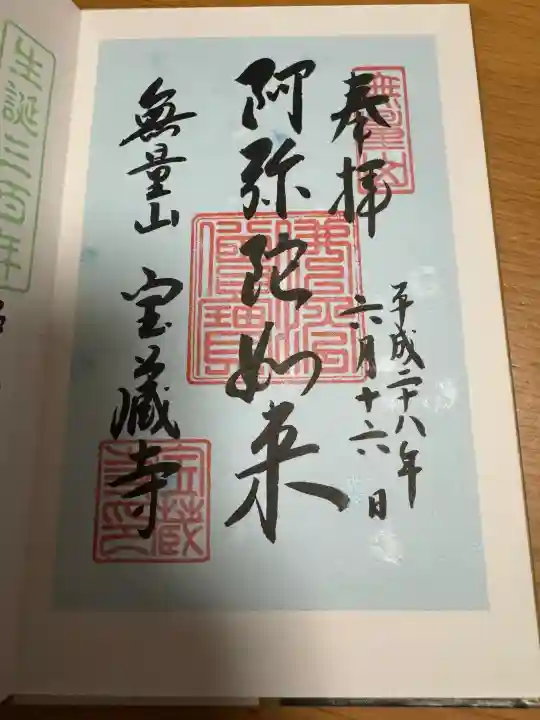 奉拝
平成二十八年
六月十六日
阿弥陀如来
無量山 宝蔵寺
無量山
仏法僧寶
生誕三百年